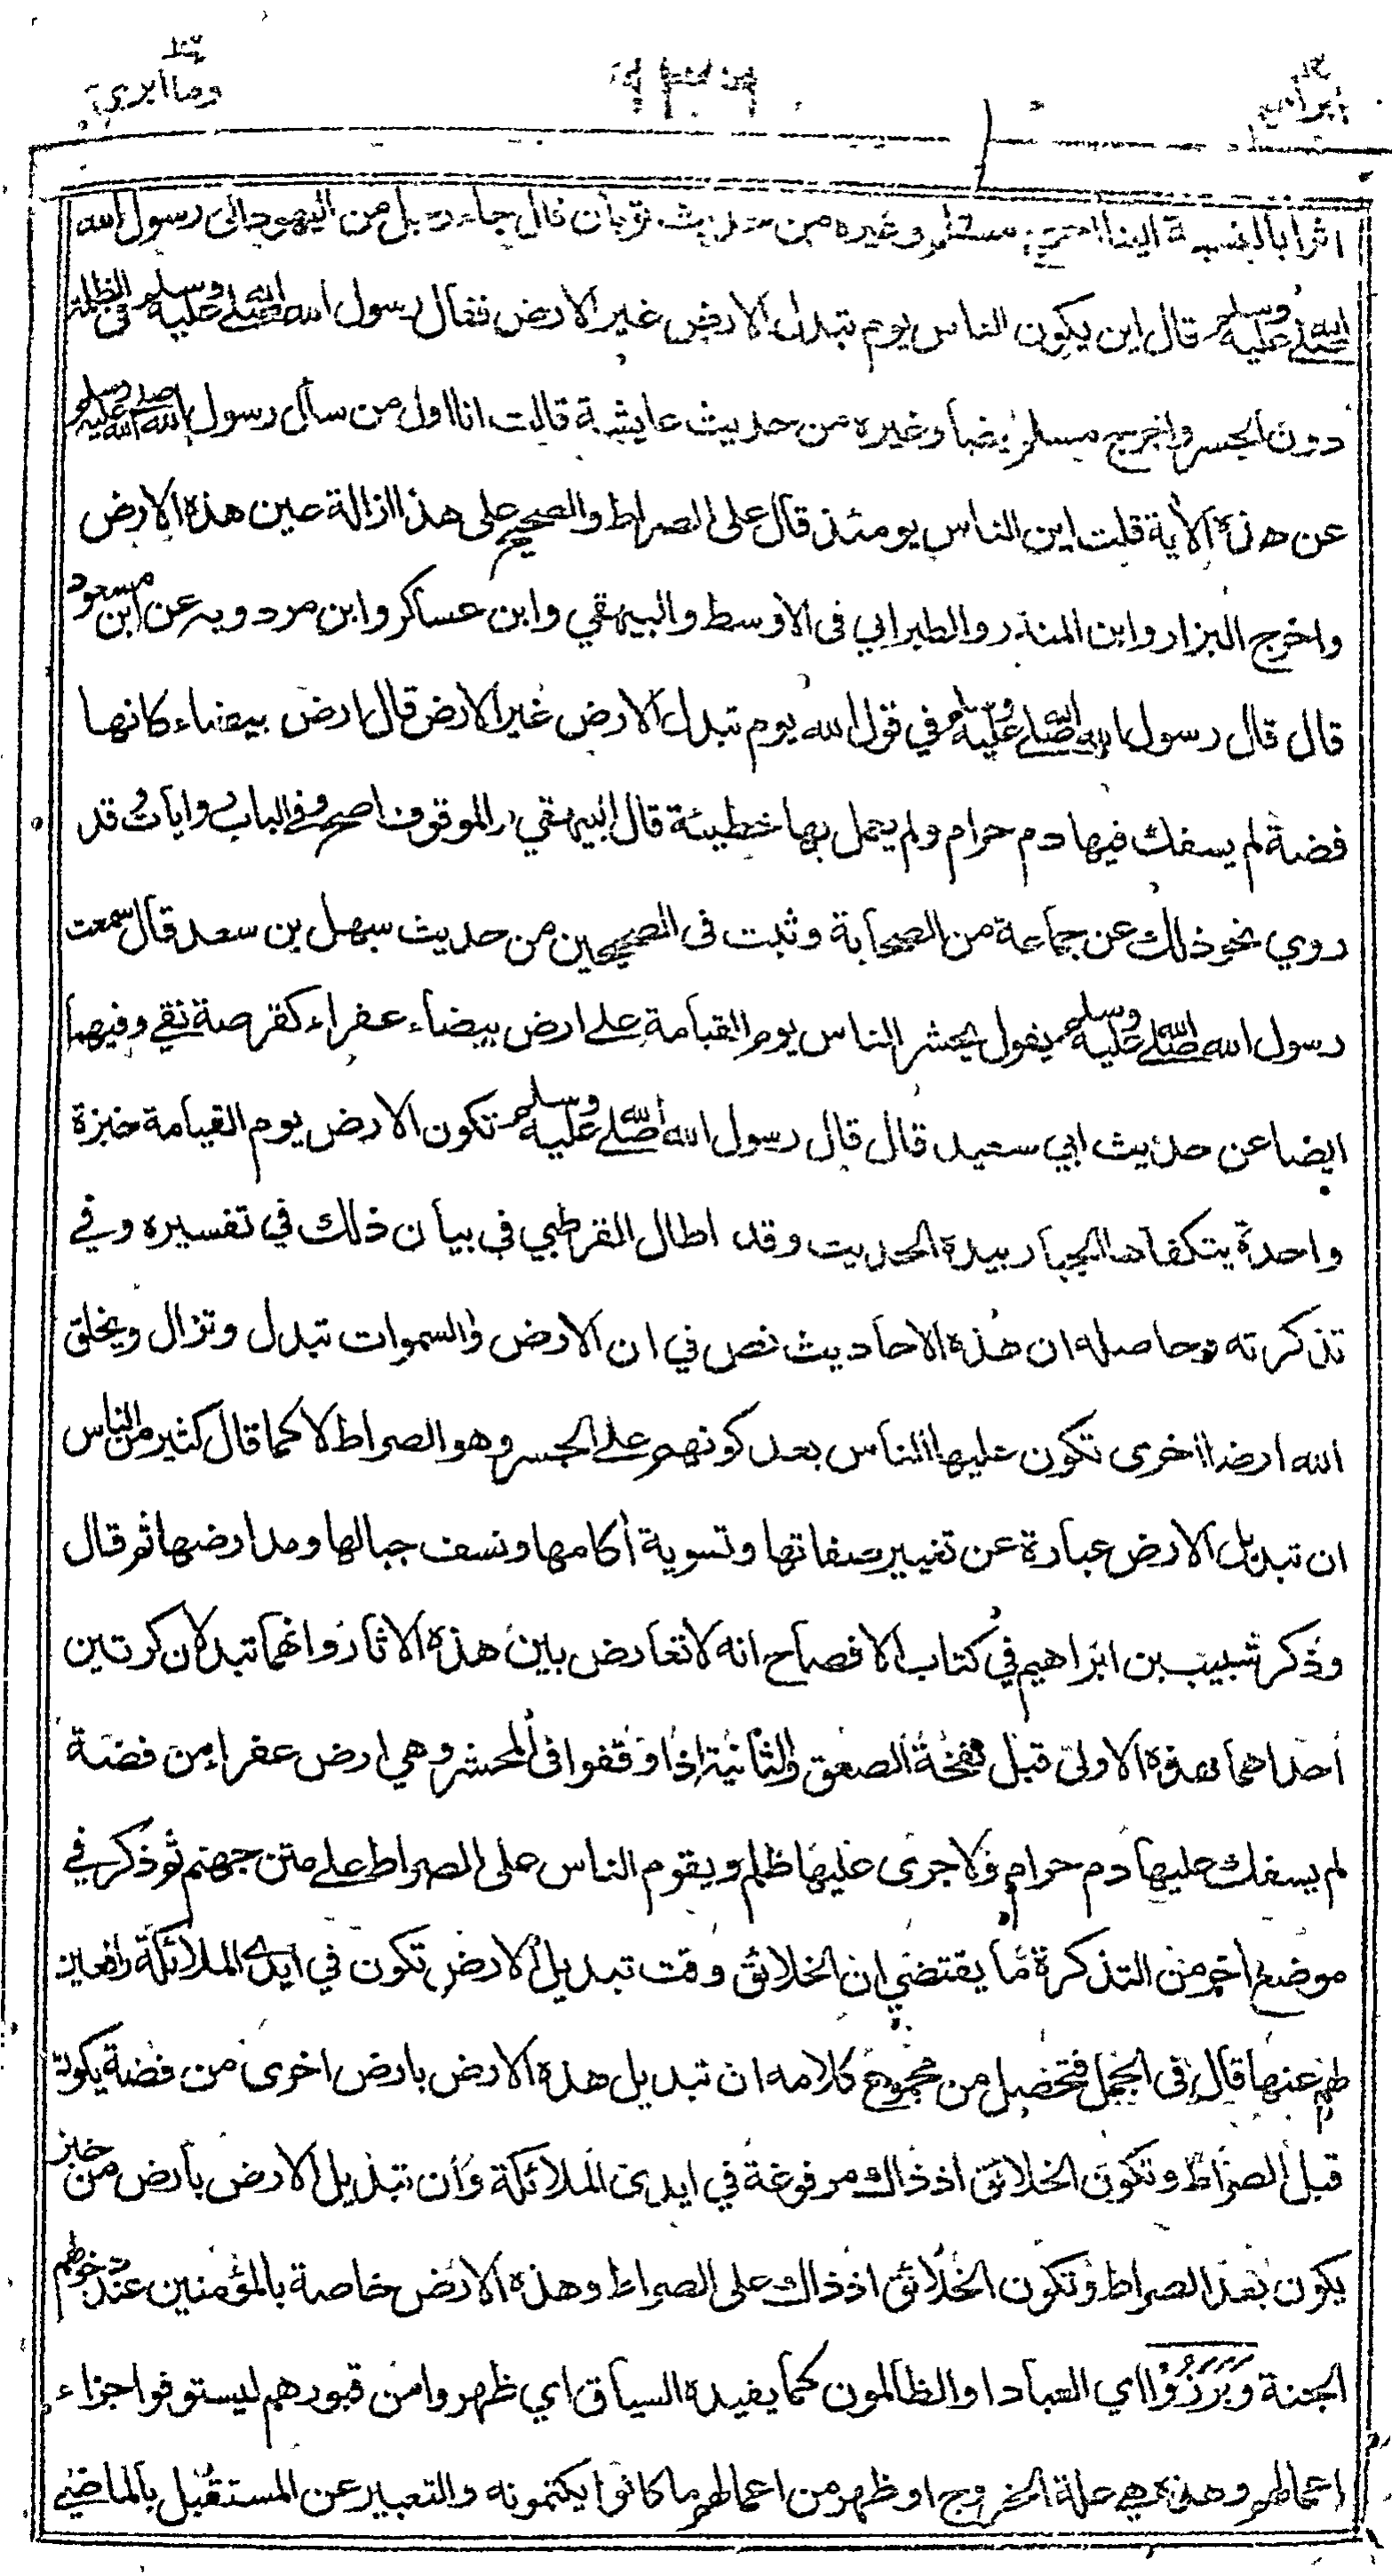 ابراهيم ١٣٦ وما ابرئ
اثرا بالنسبة الينا اخرج مسلم وغيره من حديث ثوبان قال جاء رجل من اليهود الى رسول الله
صلى الله عليه وسلم قال اين يكون الناس يوم تبدل الارض غير الارض فقال رسول الله صلى الله عليه وسلم في الظلمة
دون الجسر واخرج مسلم ايضا وغيره من حديث عايشة قالت انا اول من سأل رسول الله صلى الله عليه وسلم
عن هذه الآية قلت اين الناس يومئذ قال على الصراط والصحيح على هذا ازالة عين هذه الارض
واخرج البزار وابن المنذر والطبراني فى الاوسط والبيهقي وابن عساكر وابن مردويه عن ابن مسعود
قال قال رسول الله صلى الله عليه وسلم في قول الله يوم تبدل الارض غير الارض قال ارض بيضاء كانها
فضة لم يسفك فيها دم حرام ولم يعمل بها خطيئة قال البيهقي والموقوف اصح وفي الباب روايات وقد
روي نحو ذلك عن جماعة من الصحابة وثبت فى الصحيحين من حديث سهل بن سعد قال سمعت
رسول الله صلى الله عليه وسلم يقول يحشر الناس يوم القيامة على ارض بيضاء عفراء كقرصة نقي وفيهما
ايضا عن حديث ابي سعيد قال قال رسول الله صلى الله عليه وسلم تكون الارض يوم القيامة خبزة
واحدة يتكفاها الجبار بيده الحديث وقد اطال القرطبي في بيان ذلك في تفسيره وفي
تذكرته وحاصله ان هذه الاحاديث نص في ان الارض والسموات تبدل وتزال ويخلق
الله ارضا اخرى تكون عليها الناس بعد كونهم على الجسر وهو الصراط لا كما قال كثير من الناس
ان تبديل الارض عبارة عن تغيير صفاتها وتسوية أكامها ونسف جبالها ومد ارضها ثم قال
وذكر شبيب بن ابراهيم في كتاب الافصاح انه لا تعارض بين هذه الاثار وانهما تبدلان كرتين
احداهما هذه الاولى قبل نفخة الصعق والثانية اذا وقفوا فى المحشر وهي ارض عفراء من فضة
لم يسفك عليها دم حرام ولا جرى عليها ظلم ويقوم الناس على الصراط على متن جهنم ثم ذكر في
موضع اخر من التذكرة ما يقتضي ان الخلائق وقت تبديل الارض تكون في ايدي الملائكة رافعين
لهم عنها قال في الجمل فتحصل من مجموع كلامه ان تبديل هذه الارض بارض اخرى من فضة يكون
قبل الصراط وتكون الخلائق اذ ذاك مرفوعة في ايدى الملائكة وان تبديل الارض بارض من خبز
يكون بعد الصراط وتكون الخلائق اذ ذاك على الصراط وهذه الارض خاصة بالمؤمنين عند دخولهم
الجنة وَبَرَزُوْا اي العباد او الظالمون كما يفيده السياق اي ظهروا من قبورهم ليستوفوا جزاء
اعمالهم وهذه هي علة الخروج او ظهر من اعمالهم ما كانوا يكتمونه والتعبير عن المستقبل بالماضي